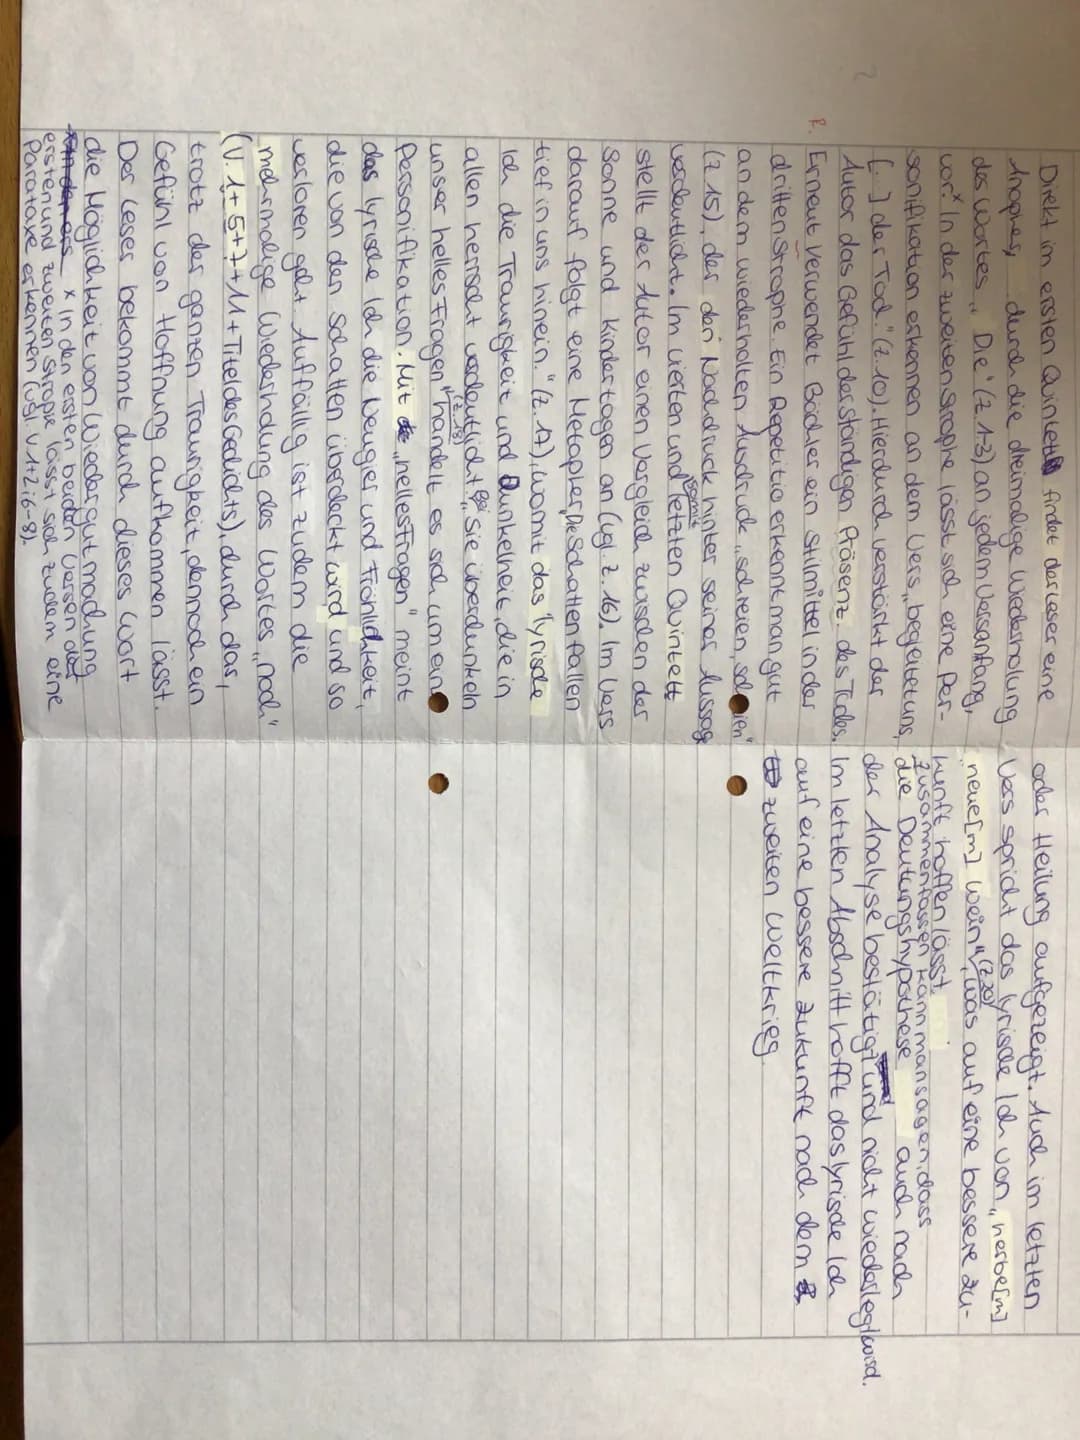 Direkt im ersten Quintett findet der Leser eine
Anapher, durch die dreimalige Wiederholung
des Wortes „Die" (z. 1-3) an jedem Versanfang,
vor.x In der zweiten Strophe lässt sich eine Per-
sonifikation erkennen an dem Vers „begleitet uns,
[...] der Tod." (z. 10). Hierdurch verstärkt der
Autor das Gefühl der ständigen Präsenz des Todes.
Erneut verwendet Bächler ein Stilmittel in der
R.
dritten Strophe. Ein Repetitio erkennt man gut
an dem wiederholten Ausdruck „schreien, schreien"
(z. 15), der den Nachdruck hinter seiner Aussage
verdeutlicht. Im vierten und somit letzten Quintett
stellt der Autor einen Vergleich zwischen der
Sonne und Kindertagen an (vgl. z. 16). Im Vers
darauf folgt eine Metapher „Die Schatten fallen
tief in uns hinein." (z. 17), womit das lyrische
Ich die Traurigkeit und Dunkelheit, die in
allen herrscht verdeutlicht. Bei „Sie überdunkeln
unser helles Fragen" (z. 18) handelt es sich um eine
Personifikation. Mit „helles Fragen" meint
das lyrische Ich die Neugier und Fröhlichkeit,
die von den Schatten überdeckt wird und so
verloren geht. Auffällig ist zudem die
mehrmalige Wiederholung des Wortes „noch"
(V. 1+5+7+11+Titel des Gedichts), durch das,
trotz der ganzen Traurigkeit, dennoch ein
Gefühl von Hoffnung aufkommen lässt.
Der Leser bekommt durch dieses Wort
die Möglichkeit von Wiedergutmachung
x In den ersten beiden Versen der
ersten und zweiten Strophe lässt sich zudem eine
Parataxe erkennen (vgl. V. 1+2; 6-8).
oder Heilung aufgezeigt. Auch im letzten
Vers spricht das lyrische Ich von „herbe[m]
neue[m] Wein" (z. 20), was auf eine bessere Zu-
kunft hoffen lässt.
Zusammenfassen kann man sagen, dass
die Deutungshypothese auch nach
der Analyse bestätigt und nicht wiederlegt wird.
Im letzten Abschnitt hofft das lyrische Ich
auf eine bessere Zukunft nach dem
zweiten Weltkrieg.